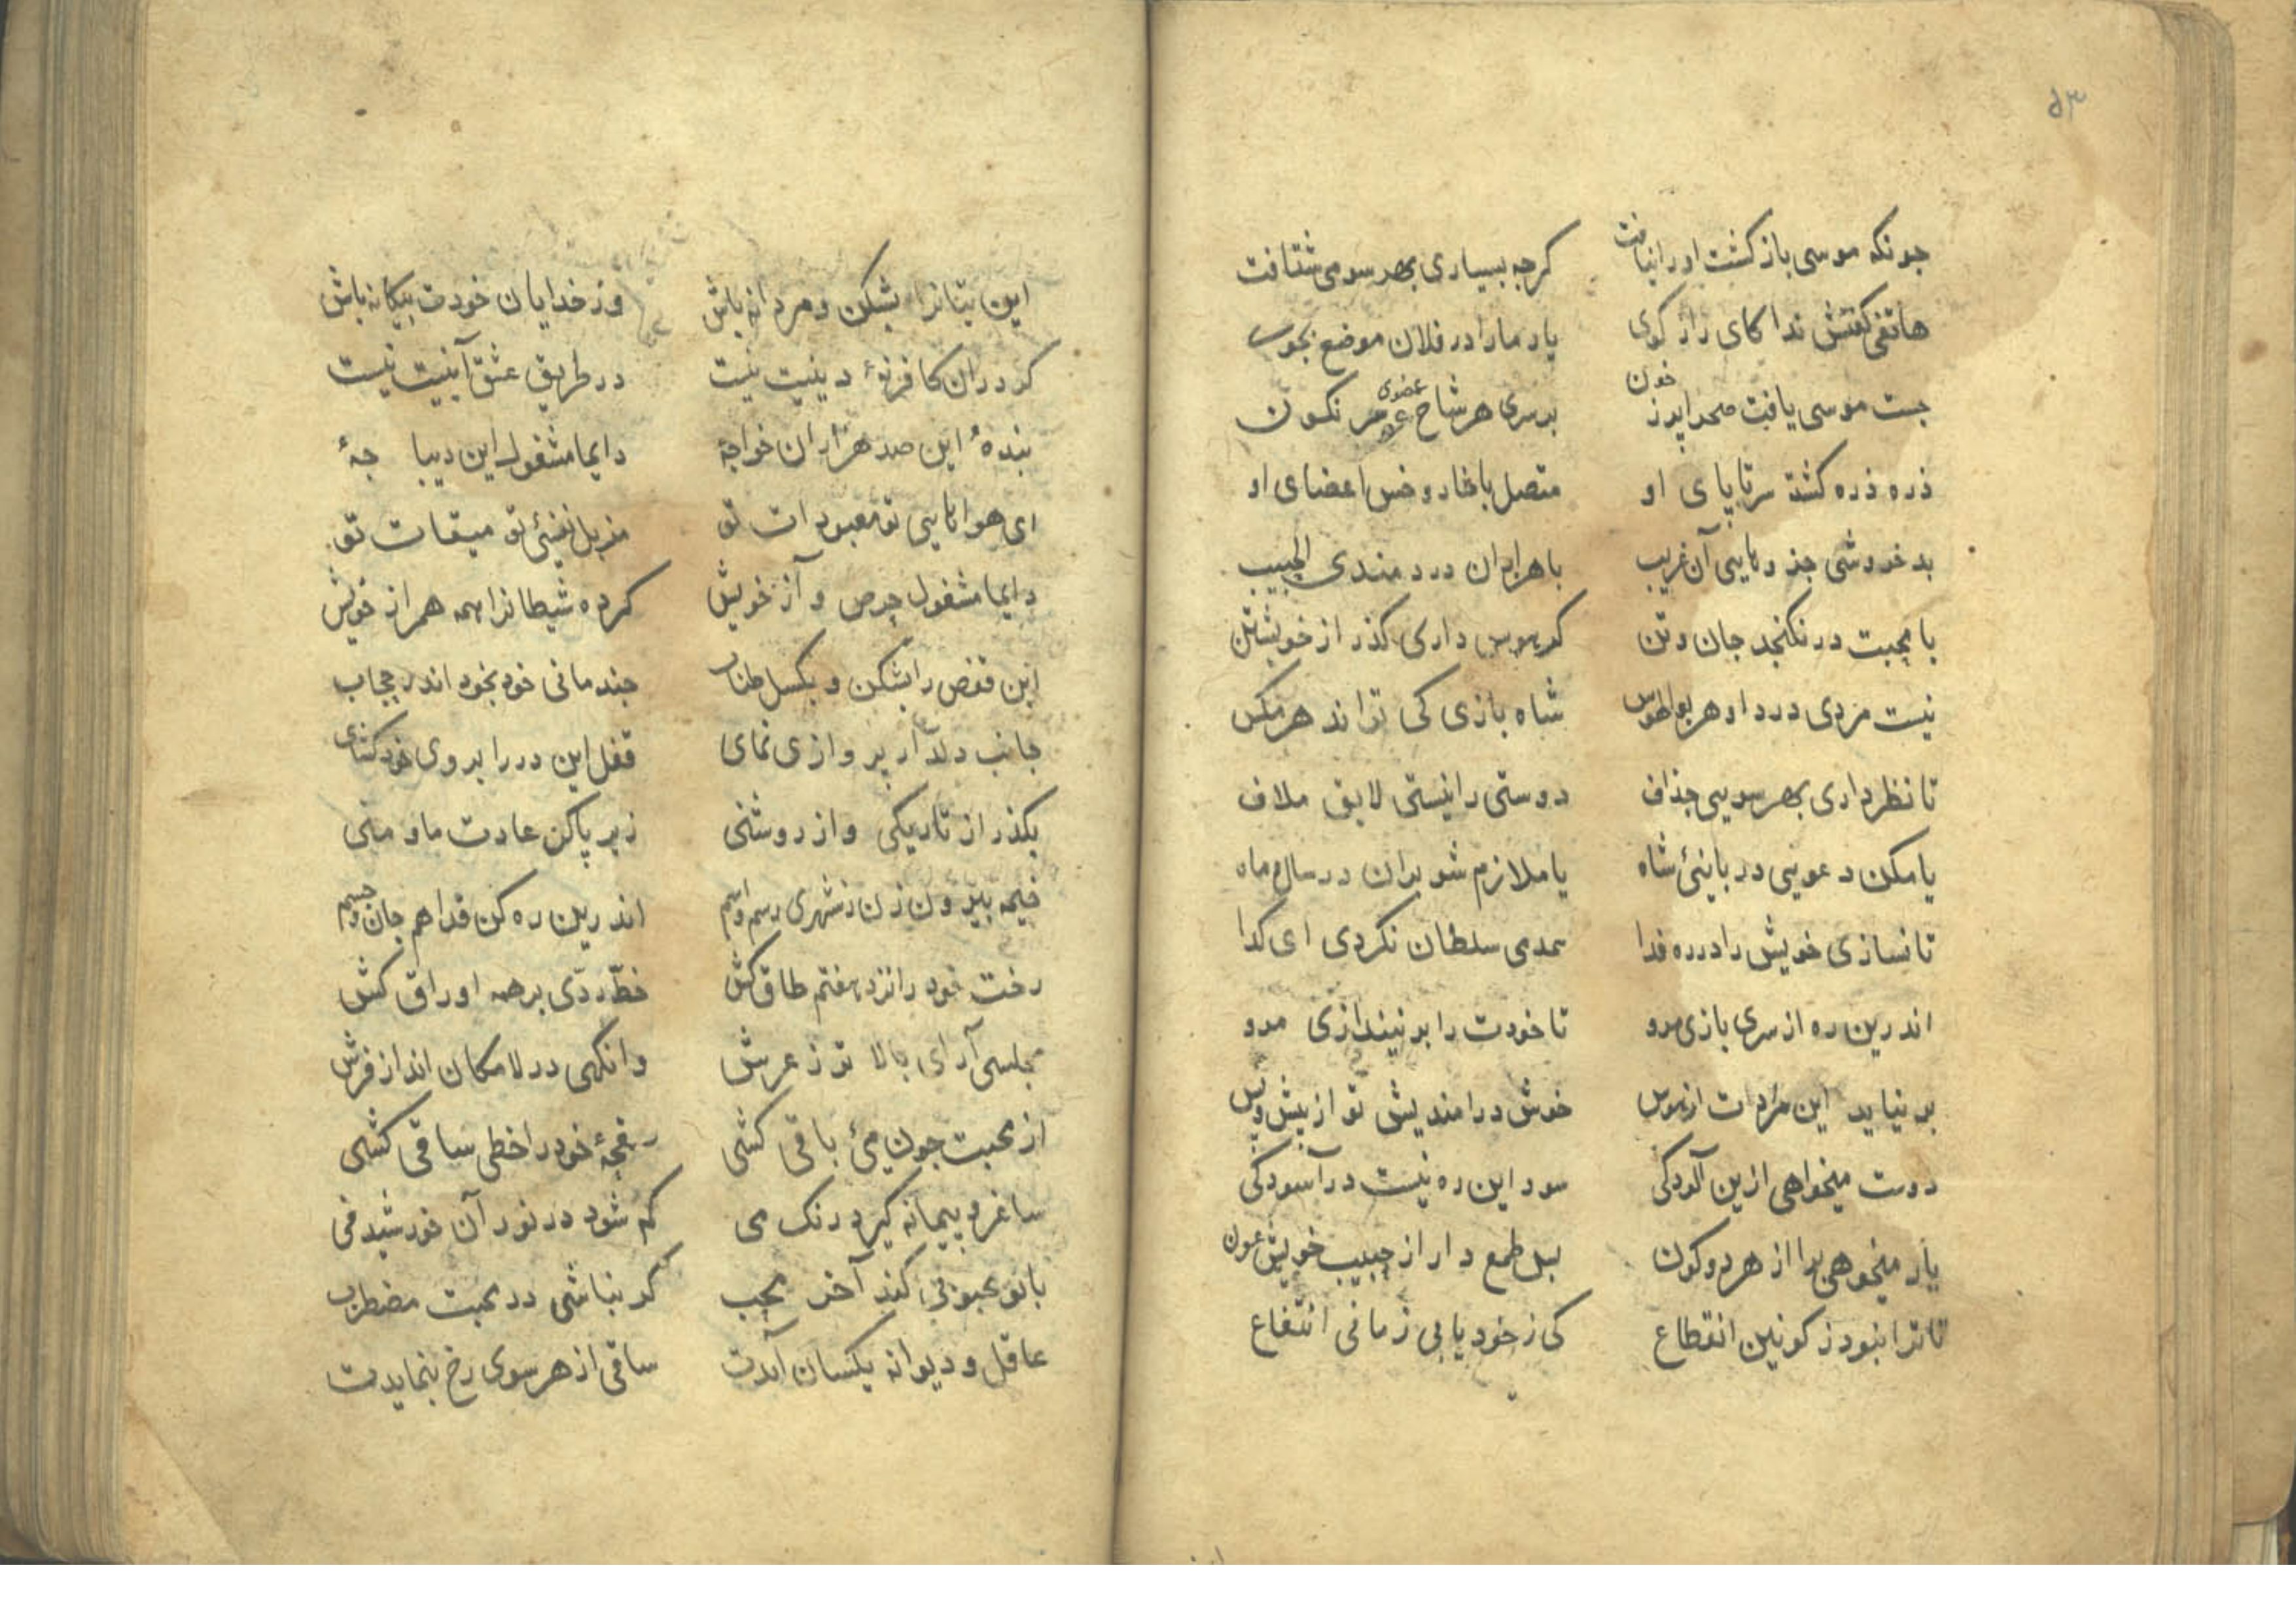 ۵۳
جونکه موسی بازکشت اورا نیافت کرجه ببسیاری بهر سو می شتافت
هاتفی کفتش ندا کای راز کوی یار مارا در فلان موضع بجوی
جست موسی یافت صحرا پر ز خون بر سری هر شاخ عضوی سر نکون
ذره ذره کشته سر تا پای او متصل با خار و خس اعضای او
بد خروشی آن غریب با هزاران دردمندی الحبیب
با محبت در نکنجد جان و تن کر هوس داری کذر از خویشتن
نیست مردی درد او هر بوالهوس شاه بازی کی تواند هر مکس
تا نظر داری بهر سویی جذاف دوستی را نیستی لایق ملاف
یا مکن دعویی شاه یا ملازم شو بران در سال و ماه
تا نسازی خویش را در ره فدا همدمی سلطان نکردی ای کدا
اندرین ره از سری بازی مرو تا خودت را بر نیندازی مرو
بر نیاید این مرادات از هوس خوش درا مندیش تو از پیش و پس
دوست میخواهی ازین آلودکی سود این ره نیست در آسودکی
یار میخوهی برا از هر دو کون بس طمع دار از حبیب خویش عون
تا ترا نبود ز کونین انقطاع کی ز خود یابی زمانی انتفاع
این بتانرا بشکن و مردانه باش وز خدایان خودت بیکانه باش
کر دران کافر نۀ دینیت نیست در طریق عشق آیینیت نیست
بندهٔ این صد هزاران خواجۀ دایما مشغول این دیبا جۀ
ای هوا تو معبودات تو تو میقات تو
دایما مشغول حرص و آز خویش کرده شیطانرا همه همراز خویش
این قفص را بشکن و بکسل طناب جند مانی خود بخود اندر حجاب
جانب دلدار پروازی نمای قفل این در را بروی خود کشای
بکذر از تاریکی و از روشنی زیر پا کن عادت ما و منی
خیمه بیرون زن ز شهری رسم و اسم اندرین ره کن فدا هم جان و جسم
رخت خود را نزد هفتم طاق کش خطّ ردّی بر همه اوراق کش
مجلسی آرای بالا تر ز عرش وانکهی در لامکان انداز فرش
از محبت جون میٔ باقی کشی رقجۀ خود را خطی ساقی کشی
ساغر و پیمانه کیرد رنک می کم شود در نور آن خورشید فی
با تو محبوبی کند آخر محب کر نباشی در محبت مضطرب
عاقل و دیوانه یکسان آیدت ساقی از هر سوی رخ بنمایدت